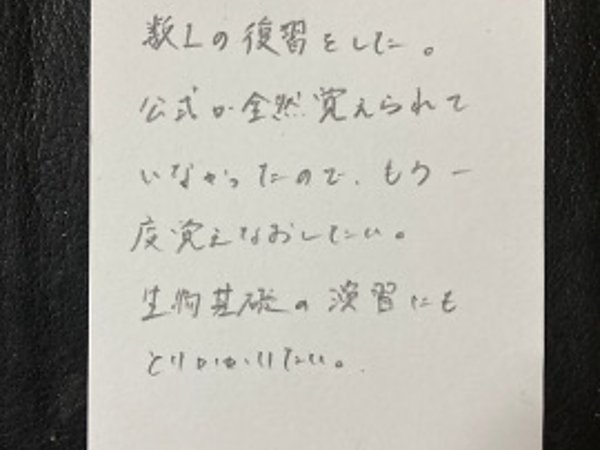 数Iの復習をした。
公式が全然覚えられて
いなかったので、もう一
度覚えなおしたい。
生物基礎の演習にも
とりかかりたい。